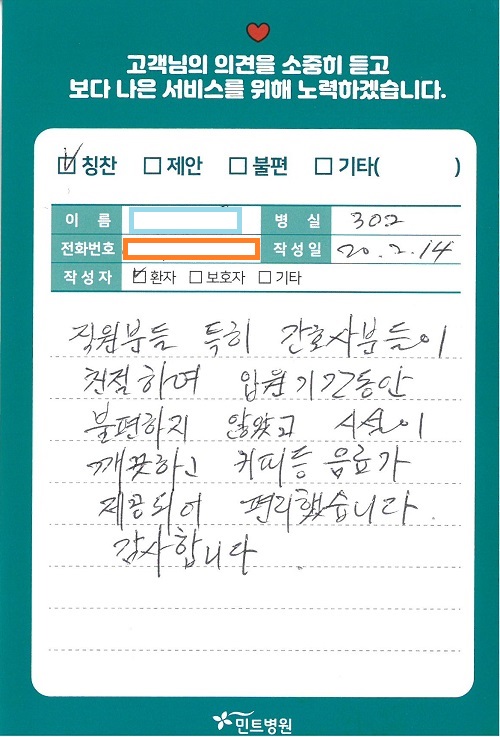 고객님의 의견을 소중히 듣고
보다 나은 서비스를 위해 노력하겠습니다.
칭찬 제안 불편 기타( )
이 름 병 실 302
전화번호 작성일 20.2.14
작성자 환자 보호자 기타
직원분들 특히 간호사분들이
친절하며 입원기간동안
불편하지 않았고 시설이
깨끗하고 커피등 음료가
제공되어 편리했습니다.
감사합니다
민트병원